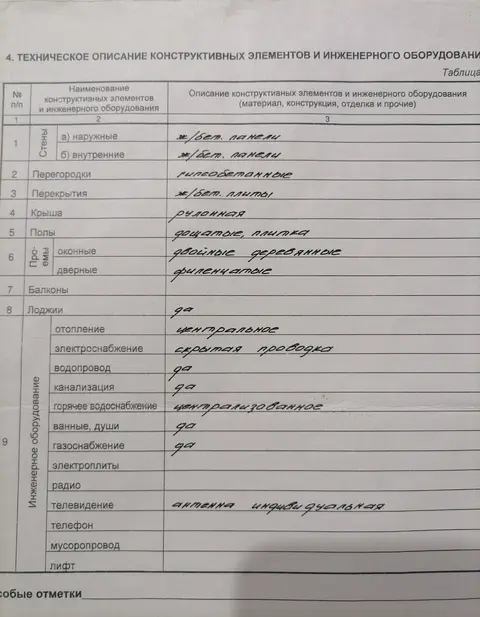 4. ТЕХНИЧЕСКОЕ ОПИСАНИЕ КОНСТРУКТИВНЫХ ЭЛЕМЕНТОВ И ИНЖЕНЕРНОГО ОБОРУДОВАНИ
Таблица
№ п/п Наименование конструктивных элементов и инженерного оборудования Описание конструктивных элементов и инженерного оборудования (материал, конструкция, отделка и прочие)
1 2 3
1 Стены а) наружные ж/бет. панели
б) внутренние ж/бет. панели
2 Перегородки гипсобетонные
3 Перекрытия ж/бет. плиты
4 Крыша рулонная
5 Полы дощатые, плитка
6 Проемы оконные двойные деревянные
дверные филенчатые
7 Балконы
8 Лоджии да
9 Инженерное оборудование отопление центральное
электроснабжение скрытая проводка
водопровод да
канализация да
горячее водоснабжение централизованное
ванные, души да
газоснабжение да
электроплиты
радио
телевидение антенна индивидуальная
телефон
мусоропровод
лифт
собые отметки